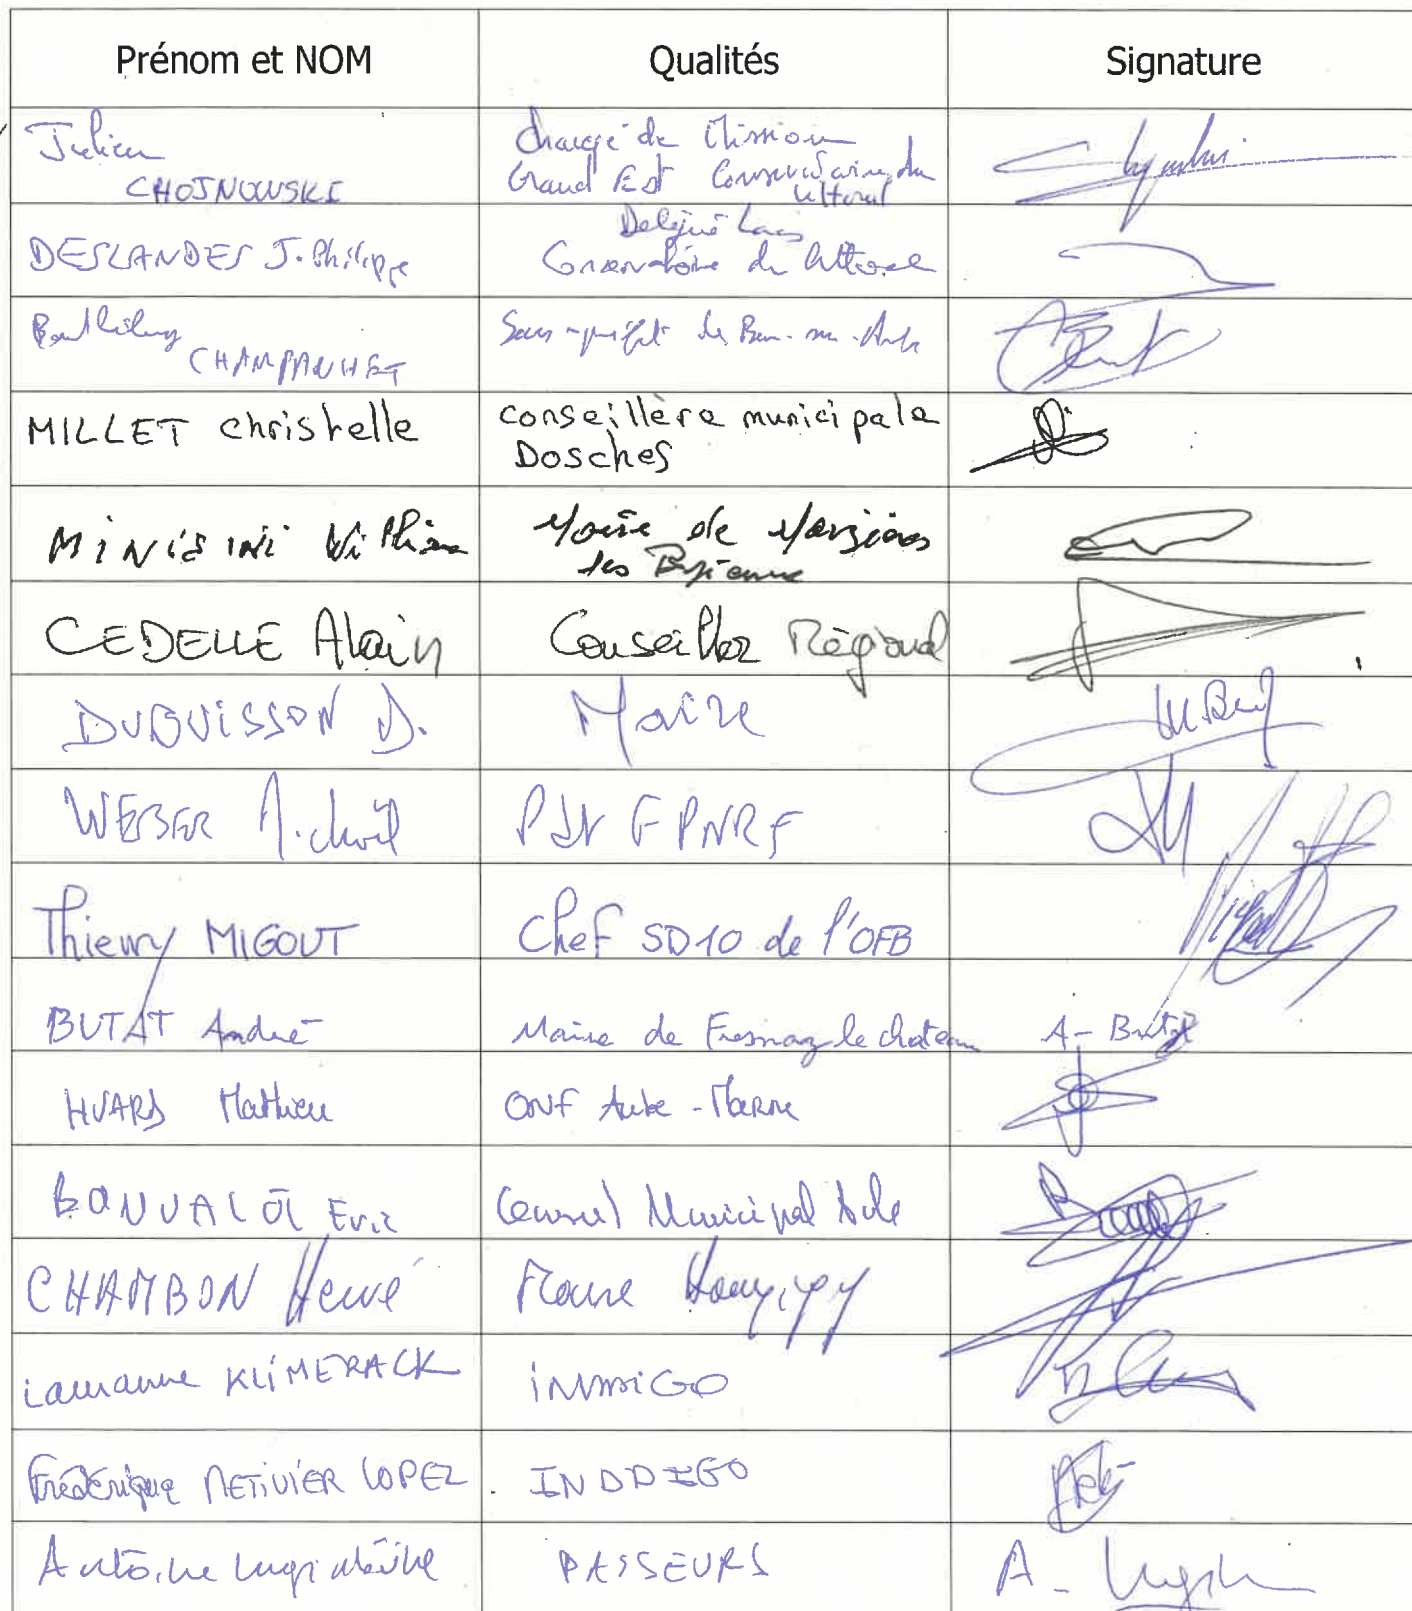 Prénom et NOM Qualités Signature
Julien
CHOJNOWSKI
Chargé de Mission
Grand Est Conservatoire du
littoral
DESLANDES J. Philippe
Délégué Lacs
Conservatoire du littoral
CHAMPANHET
Sous-préfet de Bar-sur-Aube
MILLET Christelle
conseillère municipale
Dosches
MINISINI William
Maire de
les
CEDELLE Alain Conseiller Régional
DUBUISSON D. Maire
WEBER Michaël PDT FPNRF
Thierry MIGOUT Chef SD10 de l'OFB
BUTAT André Maire de Fresnay le chateau A- Butat
HUARD Mathieu ONF Aube - Marne
BONVALOT Eric Conseil Municipal
CHAMBON Hervé
KLIMERACK INDDIGO
Frédérique METIVIER LOPEZ INDDIGO
Antoine PASSEURS A-